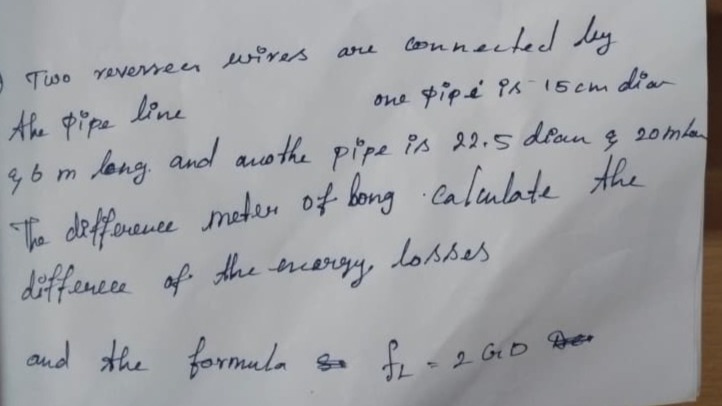 Two reverseer wires are connected by
the pipe line one pipe is 15cm dian
& 6 m long. and anothe pipe is 22.5 dian & 20m
The difference meter of long calculate the
differece of the energy losses
and the formula fL = 2GD